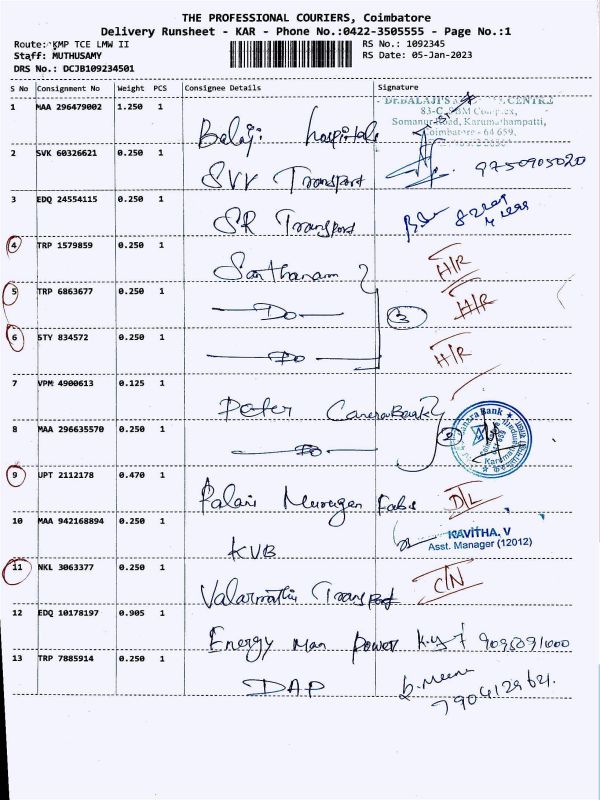 THE PROFESSIONAL COURIERS, Coimbatore
Delivery Runsheet - KAR - Phone No.:0422-3505555 - Page No.:1
Route: KMP TCE LMW II
RS No.: 1092345
Staff: MUTHUSAMY
RS Date: 05-Jan-2023
DRS No.: DCJB109234501
S No Consignment No Weight PCS Consignee Details Signature
1 MAA 296479002 1.250 1 Balaji hospitals
83-C, SBM Complex,
Somanur Road, Karumathampatti,
Coimbatore - 641 659.
2 SVK 60326621 0.250 1 SVV Transport 9750905020
3 EDQ 24554115 0.250 1 SR Transport
4 TRP 1579859 0.250 1 Santhanam H/R
5 TRP 6863677 0.250 1 Do 3 H/R
6 STY 834572 0.250 1 Do H/R
7 VPM 4900613 0.125 1 Peter Canera Bank
8 MAA 296635570 0.250 1 Do 2
Canara Bank
9 UPT 2112178 0.470 1 Palani Murugan Fabs D/L
10 MAA 942168894 0.250 1 KVB
KAVITHA. V
Asst. Manager (12012)
11 NKL 3063377 0.250 1 Valarmathi Transport C/N
12 EDQ 10178197 0.905 1 Energy Man Power
13 TRP 7885914 0.250 1 DAP B.Meena
7904129621.